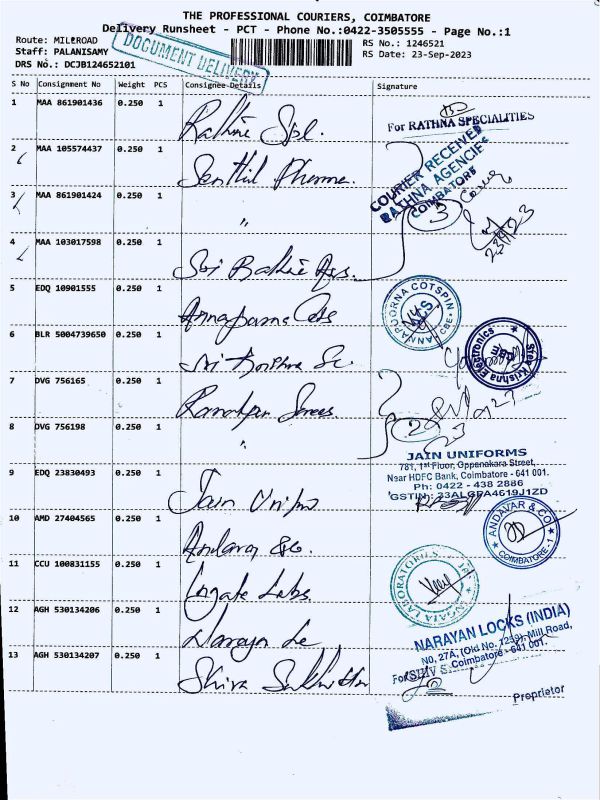 THE PROFESSIONAL COURIERS, COIMBATORE
Delivery Runsheet - PCT - Phone No.:0422-3505555 - Page No.:1
Route: MILEROAD
RS No.: 1246521
Staff: PALANISAMY
RS Date: 23-Sep-2023
DRS No.: DCJB124652101
DOCUMENT DELIVERY
S No Consignment No Weight PCS Consignee Details Signature
1 MAA 861901436 0.250 1
For RATHNA SPECIALITIES
2 MAA 105574437 0.250 1 Senthil Pharma.
COURIER RECEIVED
RATHNA AGENCIES
COIMBATORE
3 MAA 861901424 0.250 1 "
3
23/9/23
4 MAA 103017598 0.250 1 Sri
5 EDQ 10901555 0.250 1 Annapurna
ANNAPOORNA COTSPIN
CBE
6 BLR 5004739650 0.250 1 Sri Krishna
Sree Krishna Electronics
7 DVG 756165 0.250 1
8 DVG 756198 0.250 1 "
2
JAIN UNIFORMS
781, 1st Floor, Oppanakara Street,
Near HDFC Bank, Coimbatore - 641 001.
Ph: 0422 - 438 2886
GSTIN: 33ALGPA4619J1ZD
9 EDQ 23830493 0.250 1 Jain
10 AMD 27404565 0.250 1 Andavar & Co.
ANDAVAR & CO
COIMBATORE-1
11 CCU 100831155 0.250 1 Labs.
LABORATORIES
12 AGH 530134206 0.250 1 Narayan
NARAYAN LOCKS (INDIA)
NO, 27A, (Old No. 1259)-Mill Road,
Coimbatore - 641 001.
13 AGH 530134207 0.250 1 Shiva
Proprietor